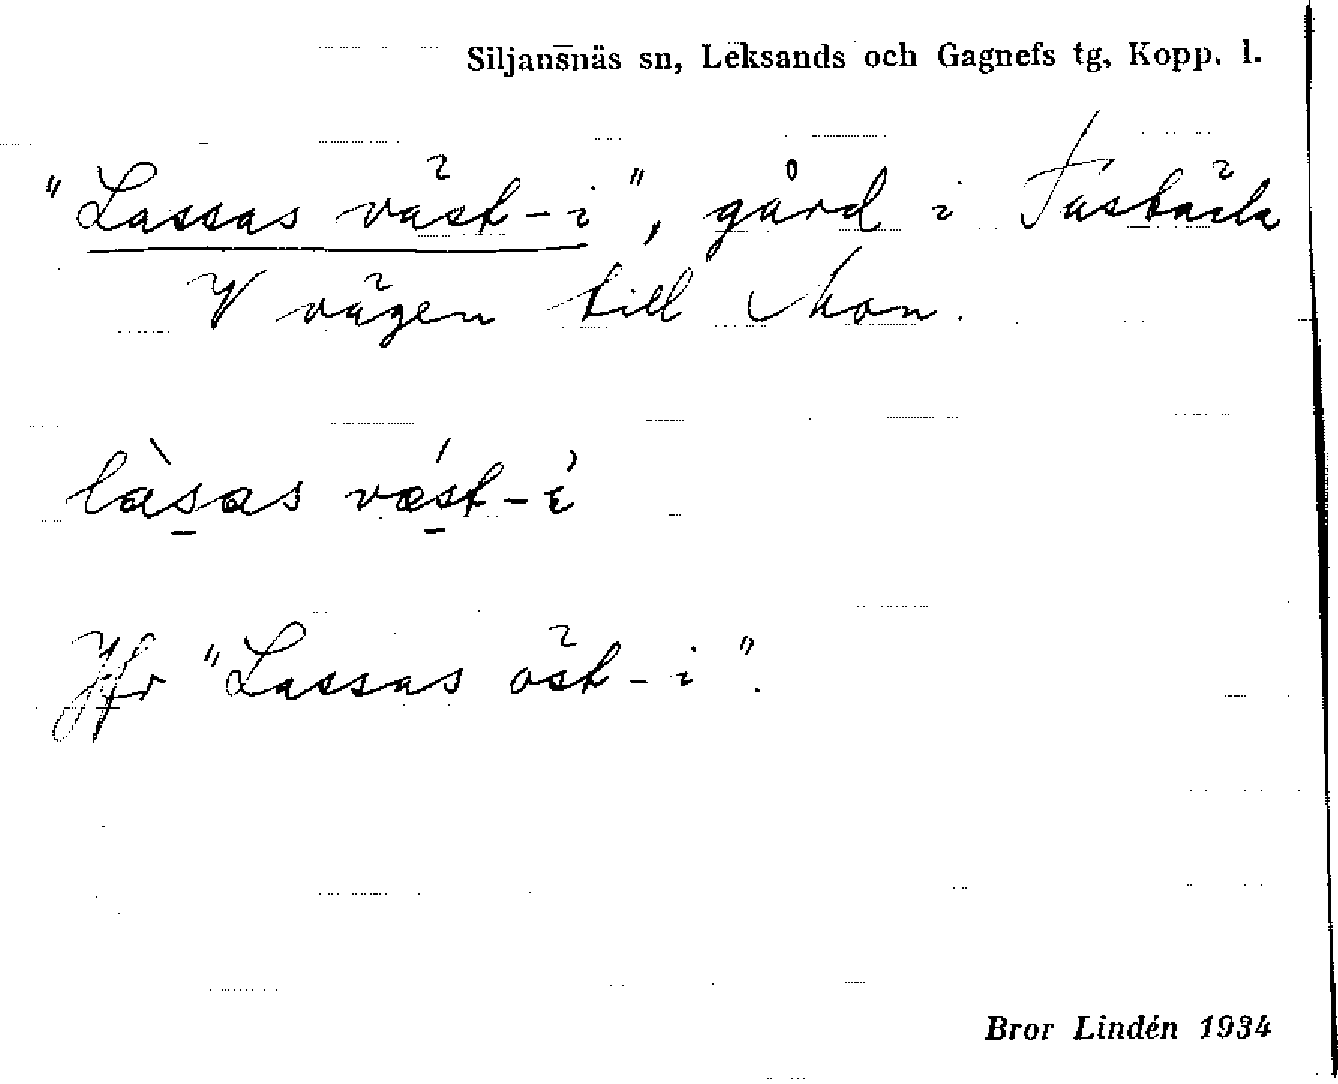 Siljansnäs sn, Leksands och Gagnefs tg, Kopp. l.
"Lassas väst-i", gård i Tasbäck
V vägen till Mon.
làsas vǽst-ì
Jfr "Lassas öst-i".
Bror Lindén 1934